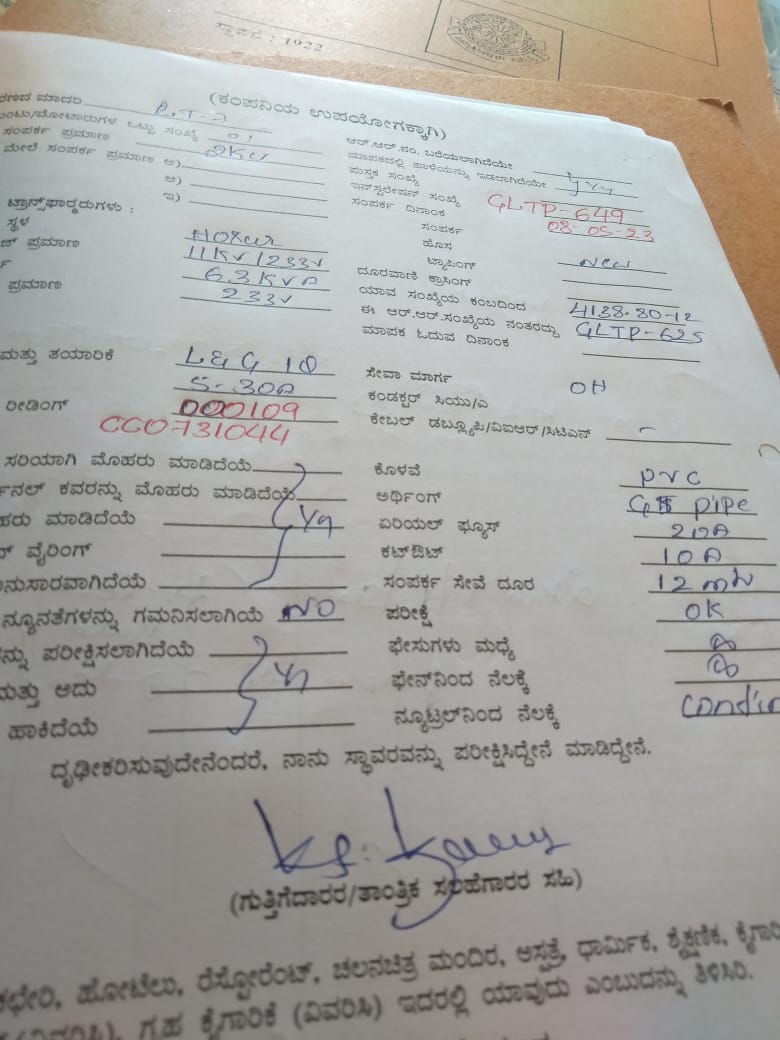 ಸ್ಥಾಪನೆ : 1922
(ಕಂಪನಿಯ ಉಪಯೋಗಕ್ಕಾಗಿ)
ಮಾದರಿ
ಒಟ್ಟು ಸಂಖ್ಯೆ 01
ಸಂಪರ್ಕ ಪ್ರಮಾಣ 2KW
ಮೇಲೆ ಸಂಪರ್ಕ ಪ್ರಮಾಣ ಅ)
ಆ)
ಇ)
ಟ್ರಾನ್ಸ್‌ಫಾರ್ಮರುಗಳು :
ಸ್ಥಳ
ಪ್ರಮಾಣ 11KV/233V
63KVA
ಪ್ರಮಾಣ 233V
ಮತ್ತು ತಯಾರಿಕೆ L&G 1Φ
5-30A
ರೀಡಿಂಗ್ 000109
CCO731044
ಸರಿಯಾಗಿ ಮೊಹರು ಮಾಡಿದೆಯೆ
ಕವರನ್ನು ಮೊಹರು ಮಾಡಿದೆಯೆ
ಮಾಡಿದೆಯೆ
ವೈರಿಂಗ್
ನ್ಯೂನತೆಗಳನ್ನು ಗಮನಿಸಲಾಗಿಯೆ NO
ಪರೀಕ್ಷಿಸಲಾಗಿದೆಯೆ
ಮತ್ತು ಅದು
ಹಾಕಿದೆಯೆ
ಆರ್.ಆರ್.ನಂ. ಬರೆಯಲಾಗಿದೆಯೇ
ಮಾಪಕದಲ್ಲಿ ಹಾಳೆಯನ್ನು ಇಡಲಾಗಿದೆಯೇ
ಪುಸ್ತಕ ಸಂಖ್ಯೆ
ಇನ್‌ಸ್ಟಲೇಷನ್ ಸಂಖ್ಯೆ GLTP-649
ಸಂಪರ್ಕ ದಿನಾಂಕ 08-05-23
ಸಂಪರ್ಕ
ಹೊಸ
ಟ್ಯಾಪಿಂಗ್ New
ದೂರವಾಣಿ ಕ್ರಾಸಿಂಗ್
ಯಾವ ಸಂಖ್ಯೆಯ ಕಂಬದಿಂದ 4138.80-12
ಈ ಆರ್.ಆರ್.ಸಂಖ್ಯೆಯ ನಂತರದ್ದು GLTP-625
ಮಾಪಕ ಓದುವ ದಿನಾಂಕ
ಸೇವಾ ಮಾರ್ಗ OH
ಕಂಡಕ್ಟರ್ ಸಿಯು/ಎ
ಕೇಬಲ್ ಡಬ್ಲ್ಯೂಪಿ/ವಿಐಆರ್/ಸಿಟಿಎಸ್
ಕೊಳವೆ PVC
ಅರ್ಥಿಂಗ್ GI pipe
ಏರಿಯಲ್ ಫ್ಯೂಸ್ 20A
ಕಟ್‌ಔಟ್ 10A
ಸಂಪರ್ಕ ಸೇವೆ ದೂರ 12 mts
ಪರೀಕ್ಷೆ OK
ಫೇಸುಗಳು ಮಧ್ಯೆ
ಫೇಸ್‌ನಿಂದ ನೆಲಕ್ಕೆ
ನ್ಯೂಟ್ರಲ್‌ನಿಂದ ನೆಲಕ್ಕೆ
ದೃಢೀಕರಿಸುವುದೇನೆಂದರೆ, ನಾನು ಸ್ಥಾವರವನ್ನು ಪರೀಕ್ಷಿಸಿದ್ದೇನೆ ಮಾಡಿದ್ದೇನೆ.
(ಗುತ್ತಿಗೆದಾರರ/ತಾಂತ್ರಿಕ ಸಲಹೆಗಾರರ ಸಹಿ)
ಕಛೇರಿ, ಹೋಟೆಲು, ರೆಸ್ಟೋರೆಂಟ್, ಚಲನಚಿತ್ರ ಮಂದಿರ, ಆಸ್ಪತ್ರೆ, ಧಾರ್ಮಿಕ, ಶೈಕ್ಷಣಿಕ,
(ವಿವರಿಸಿ), ಗೃಹ ಕೈಗಾರಿಕೆ (ವಿವರಿಸಿ) ಇದರಲ್ಲಿ ಯಾವುದು ಎಂಬುದನ್ನು ತಿಳಿಸಿರಿ.